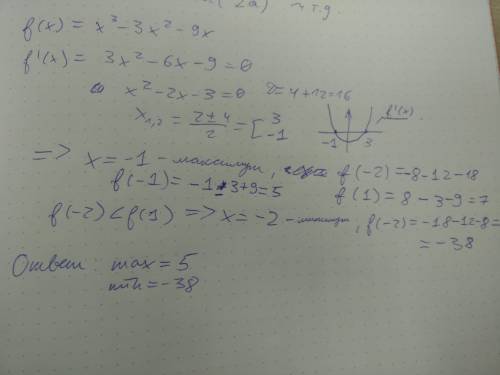 (2a) и т.д.
f(x) = x³-3x²-9x
f'(x) = 3x²-6x-9=0
x²-2x-3=0 D=4+12=16
x₁,₂ = (2±4)/2 = [3 -1
f'(x)
-1 3
=> x=-1 - максимум, f(-2)=-8-12-18
f(-1)=-1-3+9=5 f(1)=8-3-9=7
f(-2)<f(1) => x=-2 - минимум, f(-2)=-18-12-8=
=-38
Ответ: max=5
min=-38